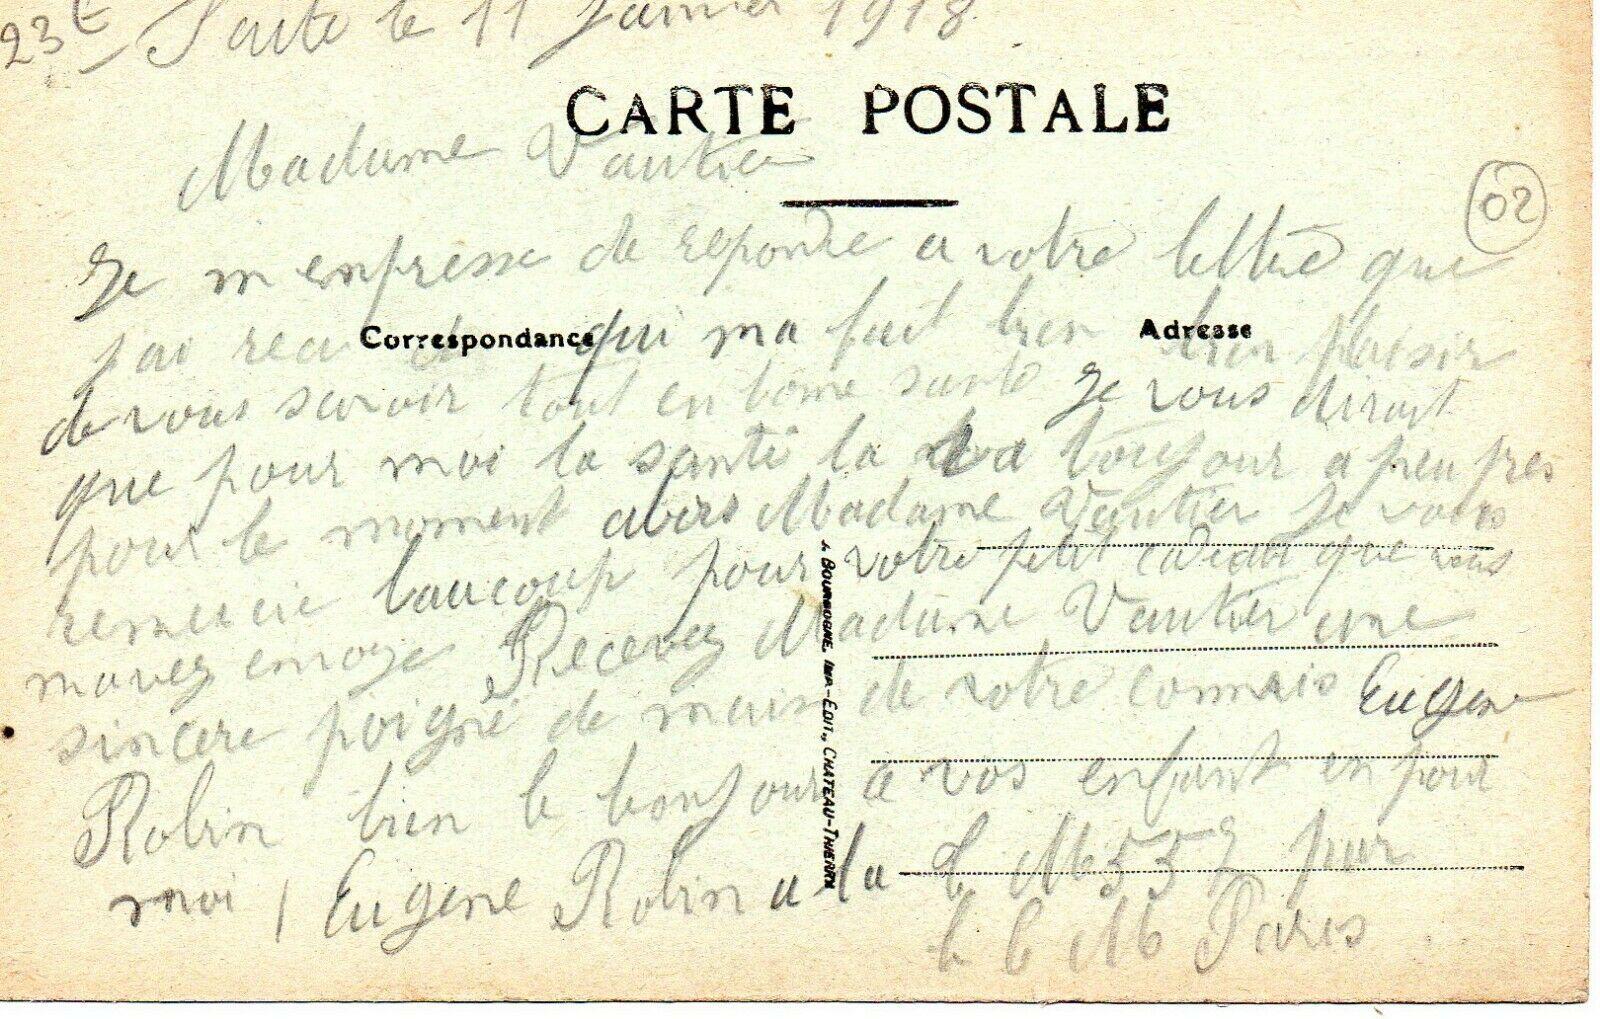 23E Parti le 11 Janvier 1918
CARTE POSTALE
Madame Vautier
02
Je m enpresse de reponre a votre lettre que
jai recu qui ma fait bien bien plaisir
Correspondance
Adresse
de vous savoir tout en bonne santé Je vous dirait
que pour moi la santé la toujour a peu pres
pour le moment alors Madame Vautier Je vous
remercie baucoup pour votre petit que vous
mavez envoyé Recevez Madame Vautier une
sincere poigné de main de votre connais Eugene
Robin bien le bonjour a vos enfant en pour
moi / Eugene Robin a la C M 557 par
B C M Paris
BOURGOGNE, IMP-EDIT., CHATEAU-THIERRY